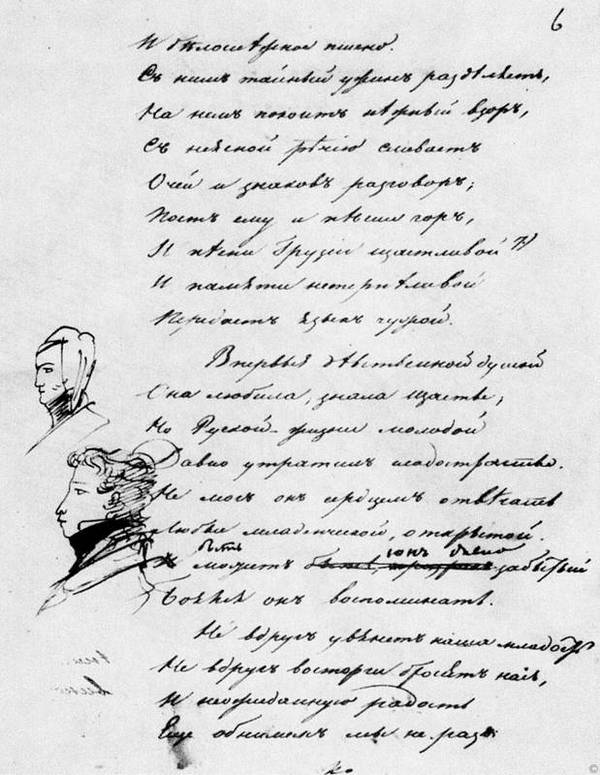 6
И бѣлоснѣжное пшено.
Съ нимъ тайный ужинъ раздѣляетъ,
На немъ покоитъ нѣжный взоръ,
Съ неясной рѣчію сливаетъ
Очей и знаковъ разговоръ;
Поетъ ему и пѣсни горъ,
И пѣсни Грузіи щастливой
И памяти нетерпѣливой
Передаетъ языкъ чужой.
Впервыя дѣвственной душой
Она любила, знала щастье;
Но Руской жизни молодой
Давно утратилъ сладострастье.
Не могъ онъ сердцемъ отвѣчать
Любви младенческой, открытой.
быть сонъ любви
Можетъ забытый
Боялся онъ воспоминать.
Не вдругъ увянетъ наша младость
Не вдругъ восторги бросятъ насъ,
И неожиданную радость
Еще обнимемъ мы не разъ: